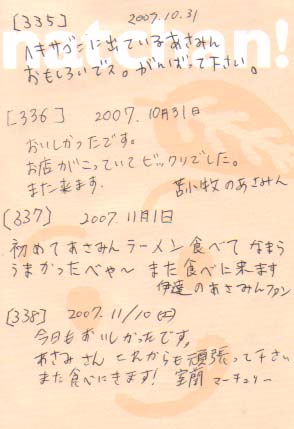 [335] 2007.10.31
natchan!
ヘキサゴンに出ているあさみん
おもしろいでス。がんばって下さい。
[336] 2007.10月31日
おいしかったです。
お店がこっていてビックリでした。
また来ます. 苫小牧のあさみん
[337] 2007.11月1日
初めてあさみんラーメン食べて なまら
うまかったべや〜 また食べに来ます
伊達のあさみんファン
[338] 2007.11/10(土)
今日もおいしかったです。
あさみさん これからも頑張って下さい
また食べにきます! 室蘭 マーチュリー